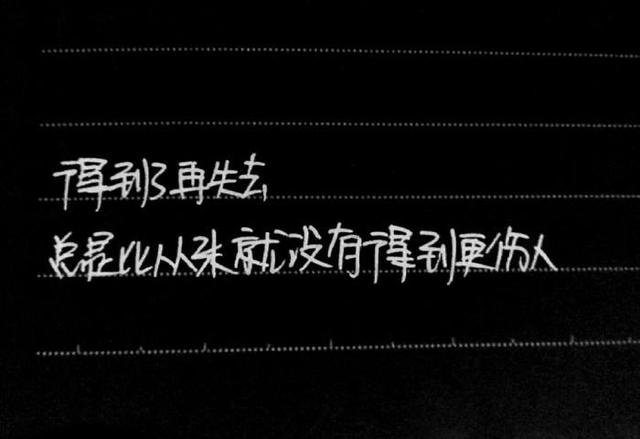 得到了再失去,
总是比从来就没有得到更伤人